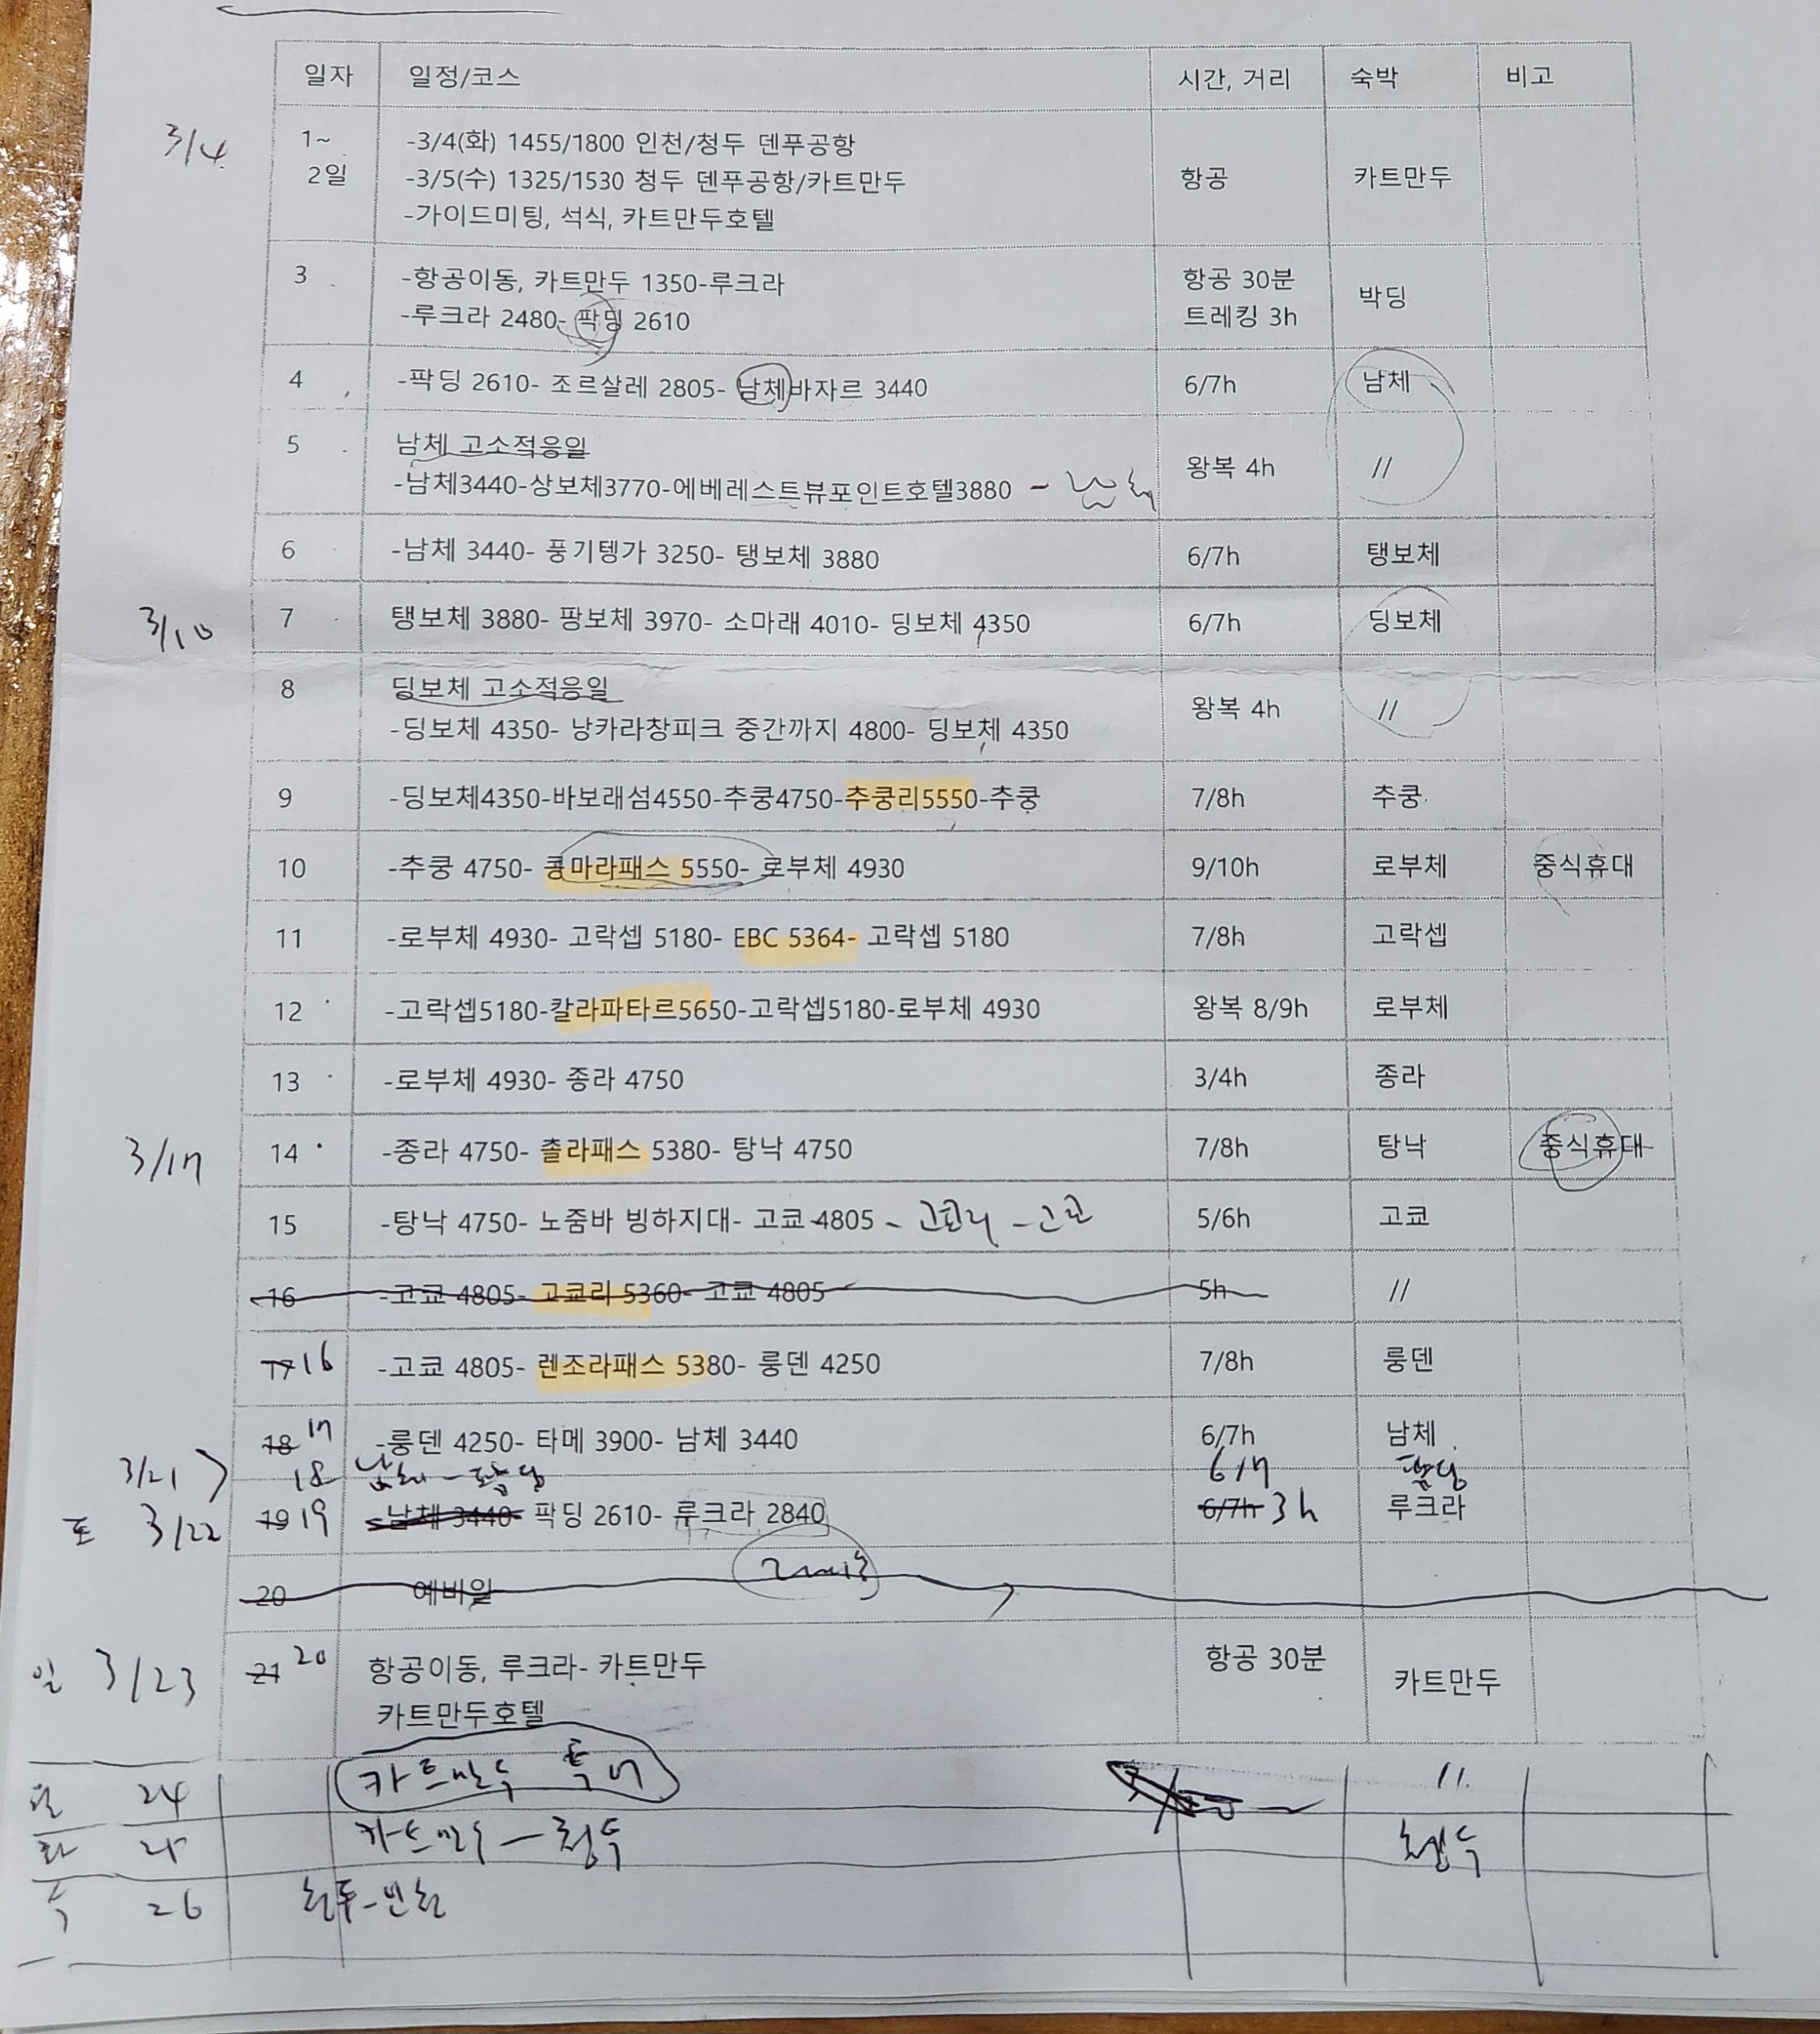 일자 일정/코스 시간, 거리 숙박 비고
3/4 1~ -3/4(화) 1455/1800 인천/청두 덴푸공항
2일 -3/5(수) 1325/1530 청두 덴푸공항/카트만두 항공 카트만두
-가이드미팅, 석식, 카트만두호텔
3 -항공이동, 카트만두 1350-루크라 항공 30분 박딩
-루크라 2480- 팍딩 2610 트레킹 3h
4 -팍딩 2610- 조르살레 2805- 남체바자르 3440 6/7h 남체
5 남체 고소적응일 왕복 4h //
-남체3440-상보체3770-에베레스트뷰포인트호텔3880 - 남체
6 -남체 3440- 풍기텡가 3250- 탱보체 3880 6/7h 탱보체
3/10 7 탱보체 3880- 팡보체 3970- 소마래 4010- 딩보체 4350 6/7h 딩보체
8 딩보체 고소적응일 왕복 4h //
-딩보체 4350- 낭카라창피크 중간까지 4800- 딩보체 4350
9 -딩보체4350-바보래섬4550-추쿵4750-추쿵리5550-추쿵 7/8h 추쿵
10 -추쿵 4750- 콩마라패스 5550- 로부체 4930 9/10h 로부체 중식휴대
11 -로부체 4930- 고락셉 5180- EBC 5364- 고락셉 5180 7/8h 고락셉
12 -고락셉5180-칼라파타르5650-고락셉5180-로부체 4930 왕복 8/9h 로부체
13 -로부체 4930- 종라 4750 3/4h 종라
3/17 14 -종라 4750- 촐라패스 5380- 탕낙 4750 7/8h 탕낙 중식휴대
15 -탕낙 4750- 노줌바 빙하지대- 고쿄 4805 - 고쿄리 - 고쿄 5/6h 고쿄
16 -고쿄 4805- 고쿄리 5360- 고쿄 4805 5h //
17 16 -고쿄 4805- 렌조라패스 5380- 룽덴 4250 7/8h 룽덴
18 17 -룽덴 4250- 타메 3900- 남체 3440 6/7h 남체
3/21 18 남체 - 팍딩 6/7 팍딩
토 3/22 19 19 -남체 3440- 팍딩 2610- 루크라 2840 6/7h 3h 루크라
20 예비일
일 3/23 21 20 항공이동, 루크라- 카트만두 항공 30분 카트만두
카트만두호텔
월 24 카트만두 투어 //
화 25 카트만두 - 청두 청두
수 26 청두-인천